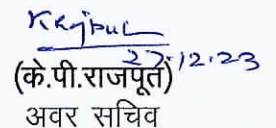 KRajput
27.12.23
(के.पी.राजपूत)
अवर सचिव